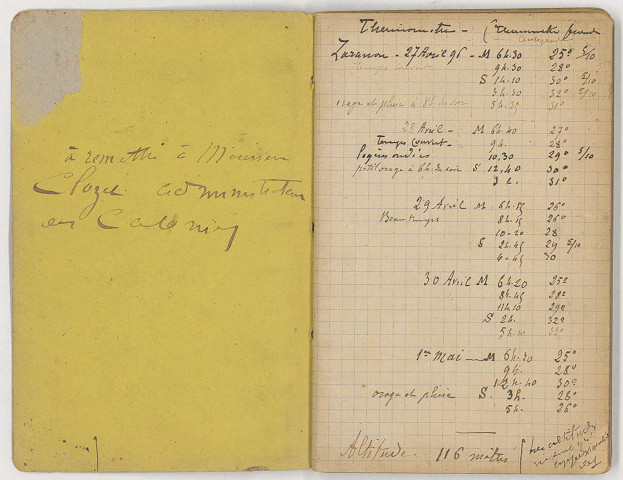 à remettre à Monsieur
Clozel administrateur
des Colonies
Thermomètre - (Thermomètre fronde
centigrade
Zaranou - 27 Avril 96 - M 6h.30 25° 5/10
temps couvert 9h.30 28°
S 1h.10 30° 5/10
3h.30 32° 5/10
orage et pluie à 8h. du soir 5h.35 31°
28 Avril - M 6h.40 27°
Temps couvert - 9h. 28°
Légères ondées 10.30 29° 5/10
petit orage à 6h. du soir S 12,40 30°
3h. 31°
29 Avril M 6h.15 26°
Beau temps 8h.15 26°
10-20 28
S 2h.45 29 5/10
4-45 30
30 Avril M 6h.20 25°
8h.45 28°
11h.10 29°
S 2h. 32°
5h.10 32°
1er Mai - M 6h.30 25°
9h. 28°
12h.40 30°
orage et pluie S. 3h. 28°
5h. 26°
Altitude. 116 mètres